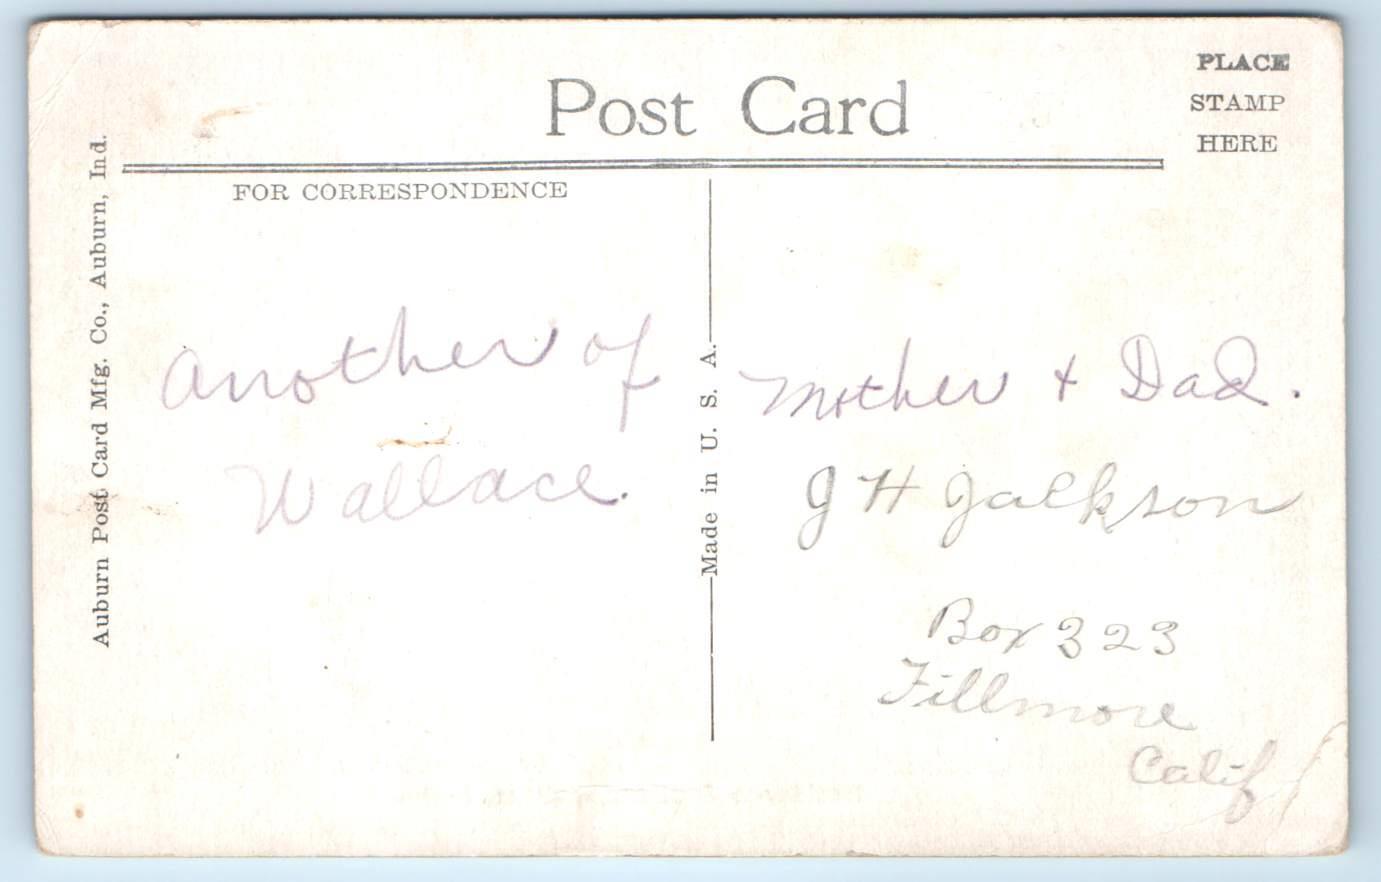 Post Card
PLACE
STAMP
HERE
FOR CORRESPONDENCE
Auburn Post Card Mfg. Co., Auburn, Ind.
Another of
Wallace.
Made in U. S. A.
Mother + Dad.
J H Jackson
Box 323
Fillmore
Calif